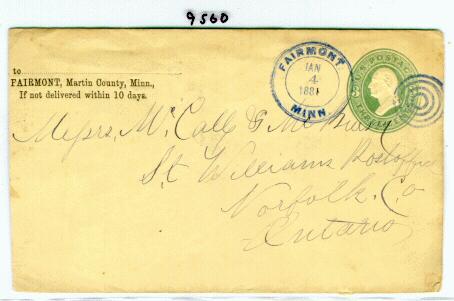 9560
to
FAIRMONT, Martin County, Minn.,
If not delivered within 10 days.
FAIRMONT
JAN
4
188
MINN
U.S. POSTAGE
THREE CENTS
Messrs. McCall &
St. Williams Post office
Norfolk. Co
Ontario